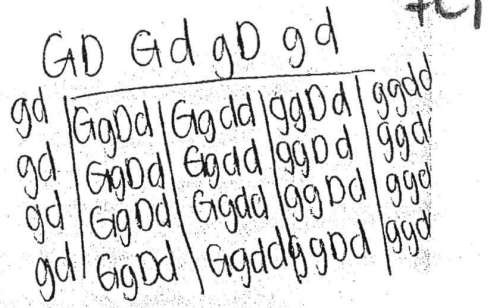 GD Gd gD gd
gd GgDd Ggdd ggDd ggdd
gd GgDd Ggdd ggDd ggd
gd GgDd Ggdd ggDd ggd
gd GgDd Ggdd ggDd ggd